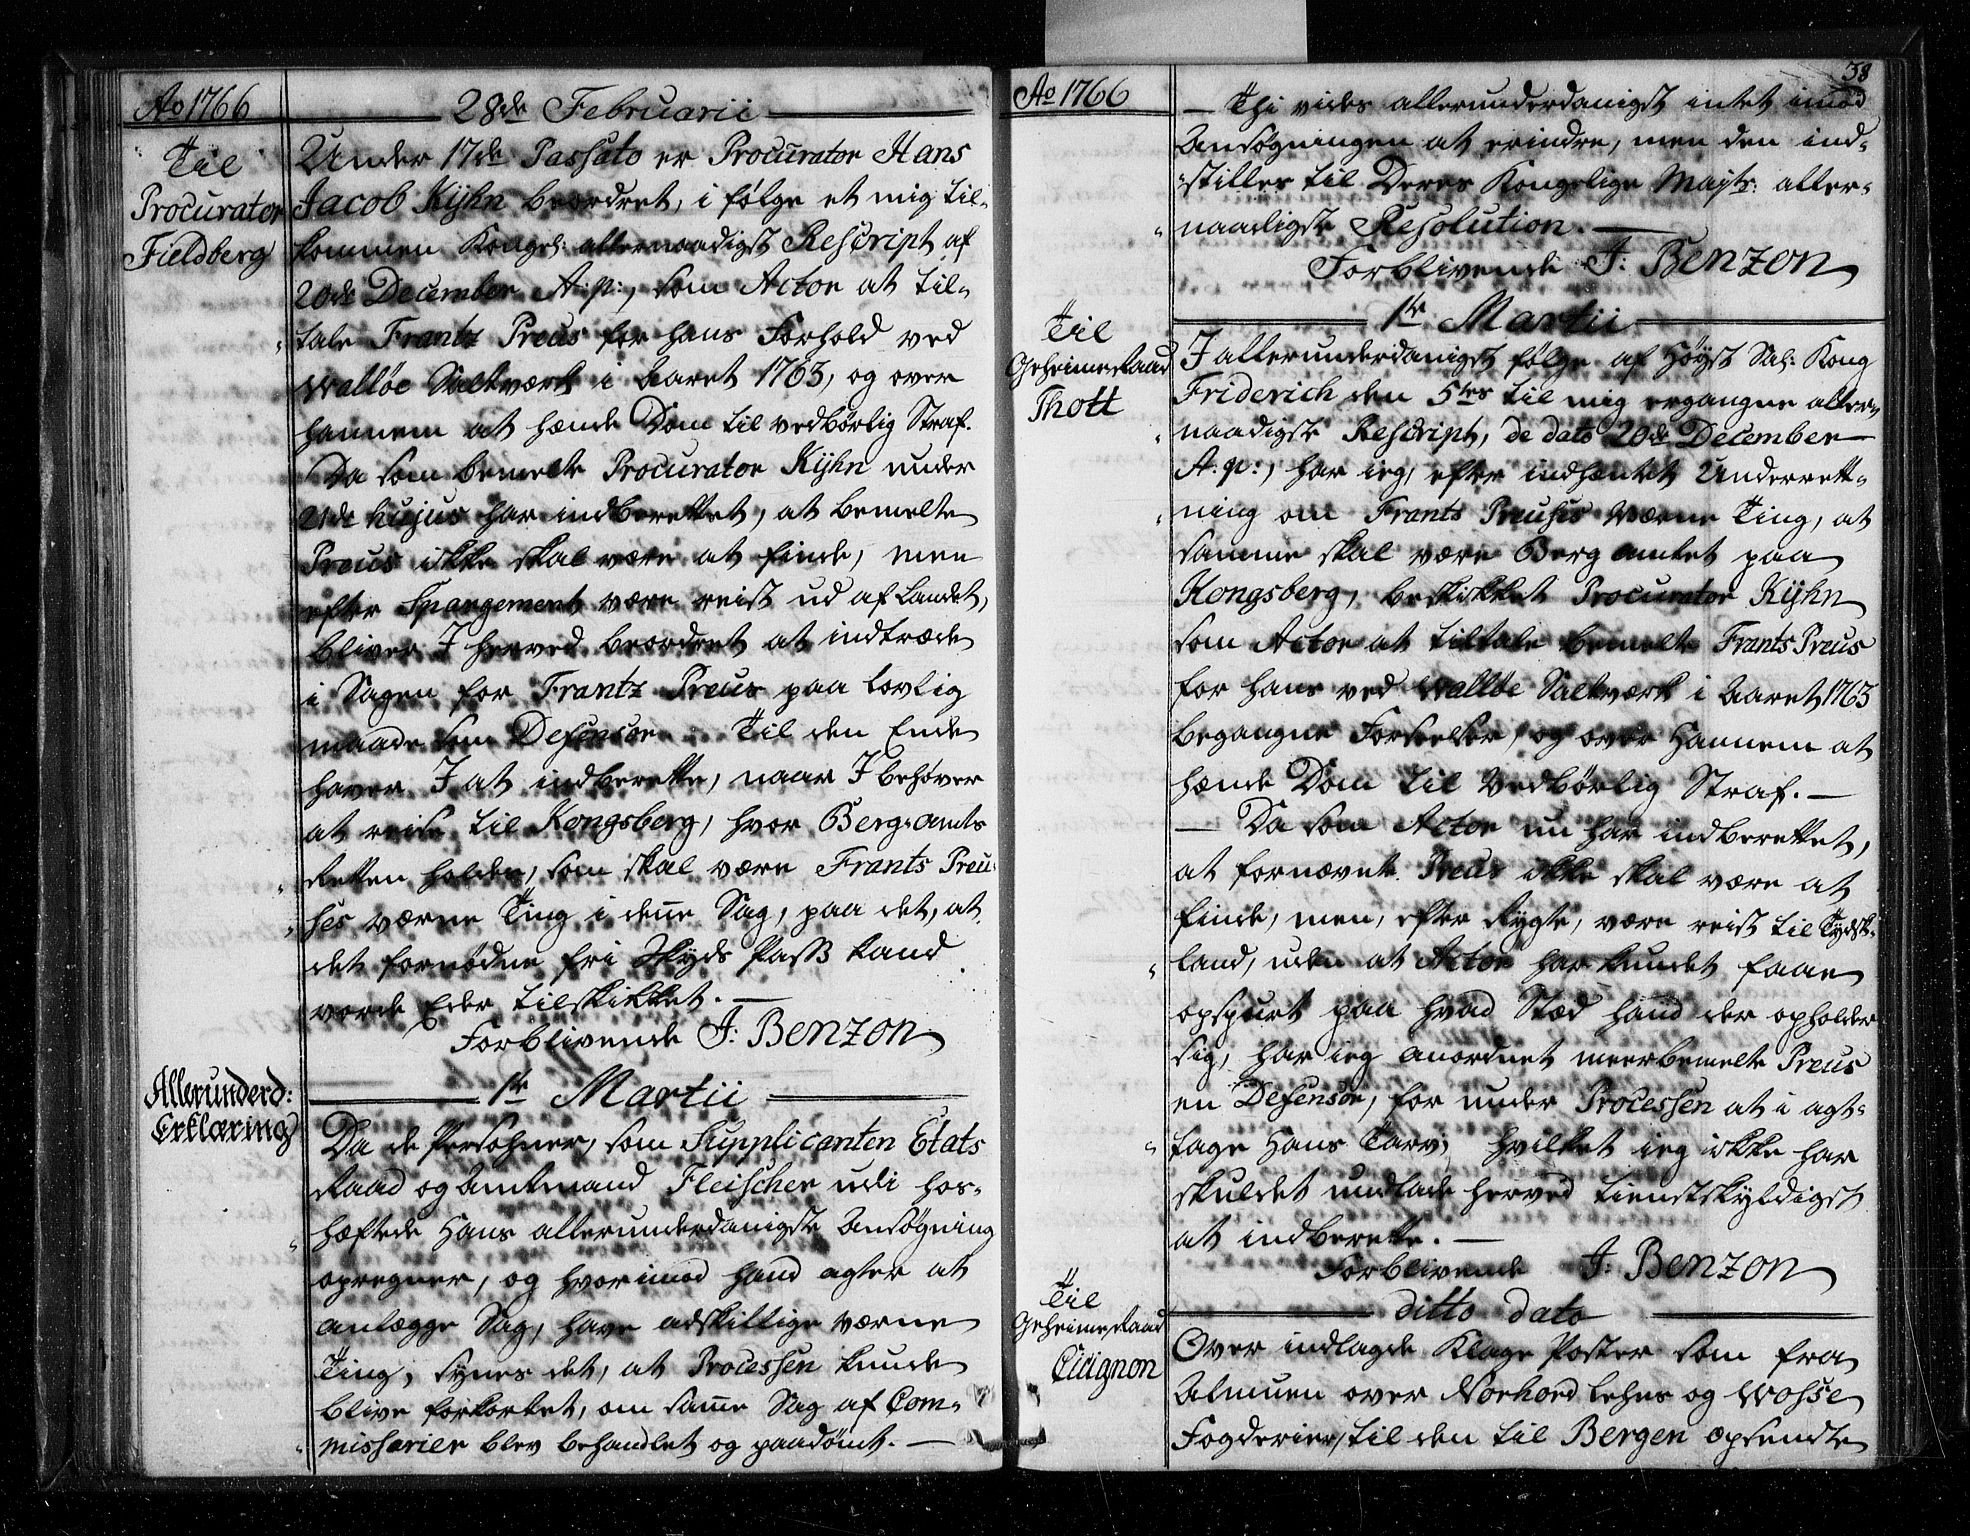 Ao 1766
28de Februarii
Til
Procurator
Fieldberg
Under 17de Passato er Procurator Hans
Jacob Kijhn beordret, i følge et mig til-
kommen Kongel: allernaadigst Rescript af
20de December A: p:, som Actor at til-
"tale Frantz Preus for hans Forhold ved
Walløe Saltværk i Aaret 1763, og over
hannem at hænde Dom til vedbørlig Straf.
Da som bemelte Procurator Kijhn under
21de hujus har indberettet, at bemelte
Preus ikke skal være at finde, men
efter Spargement være reist ud af Landet,
bliver I herved beordret at indtræde
i Sagen for Frantz Preus paa lovlig
maade som Defensor. Til den Ende
haver I at indberette, naar I behøver
at reise til Kongsberg, hvor Berg-amts
"Retten holdes, som skal være Frants Preu-
"ses værne Ting i denne Sag, paa det, at
det fornødne fri Skyds Pass kand
vorde Eder tilskikket. —
Forblivende J: Benzon
Allerunderd:
Erklæring
1te Martii
Da de Persohner, som Supplicanten Etats
Raad og Amtmand Fleischer udi hos-
"hæftede Hans allerunderdanigste Ansøgning
opregner, og hvorimod hand agter at
anlægge Sag, have adskillige værne
Ting, synes det, at Processen kunde
blive forkortet, om samme Sag af Com-
"missarier blev behandlet og paadømt. —
Ao 1766
38
— Thi vides allerunderdanigst intet imod
Ansøgningen at erindre, men den ind-
"stilles til Deres Kongelige Majts: aller-
"naadigste Resolution. —
Forblivende J: Benzon
1te Martii
Til
Geheime Raad
Thott
I allerunderdanigst følge af Høyst Sal: Kong
Friderich den 5tes til mig ergangne aller-
"naadigste Rescript, de dato 20de December
A: p:, har ieg, efter indhæntet Underrett-
"ning om Frants Preuses Værne Ting, at
samme skal være Berg amtet paa
Kongsberg, beskikket Procurator Kijhn
som Actor at tiltale bemelte Frants Preus
for hans ved Walløe Saltværk i Aaret 1763
begangne Forseelser, og over Hannem at
hænde Dom til Vedbørlig Straf. —
— Da som Actor nu har indberettet,
at fornævnte Preus ikke skal være at
finde, men, efter Rygte, være reist til Tydsk-
"land, uden at Actor har kundet faae
opspurt paa hvad Stæd hand der opholder
sig, har ieg anordnet meerbemelte Preus
en Defensor, for under Processen at i agt-
"tage Hans Tarv, hvilket ieg ikke har
skuldet undlade herved tienstskyldigst
at indberette. —
Forblivende J: Benzon
ditto dato
Til
Geheime Raad
Cicignon
Over indlagde Klage Poster som fra
Almuen over Norhord Lehns og Wosse
Fogderier, til den til Bergen opsendte